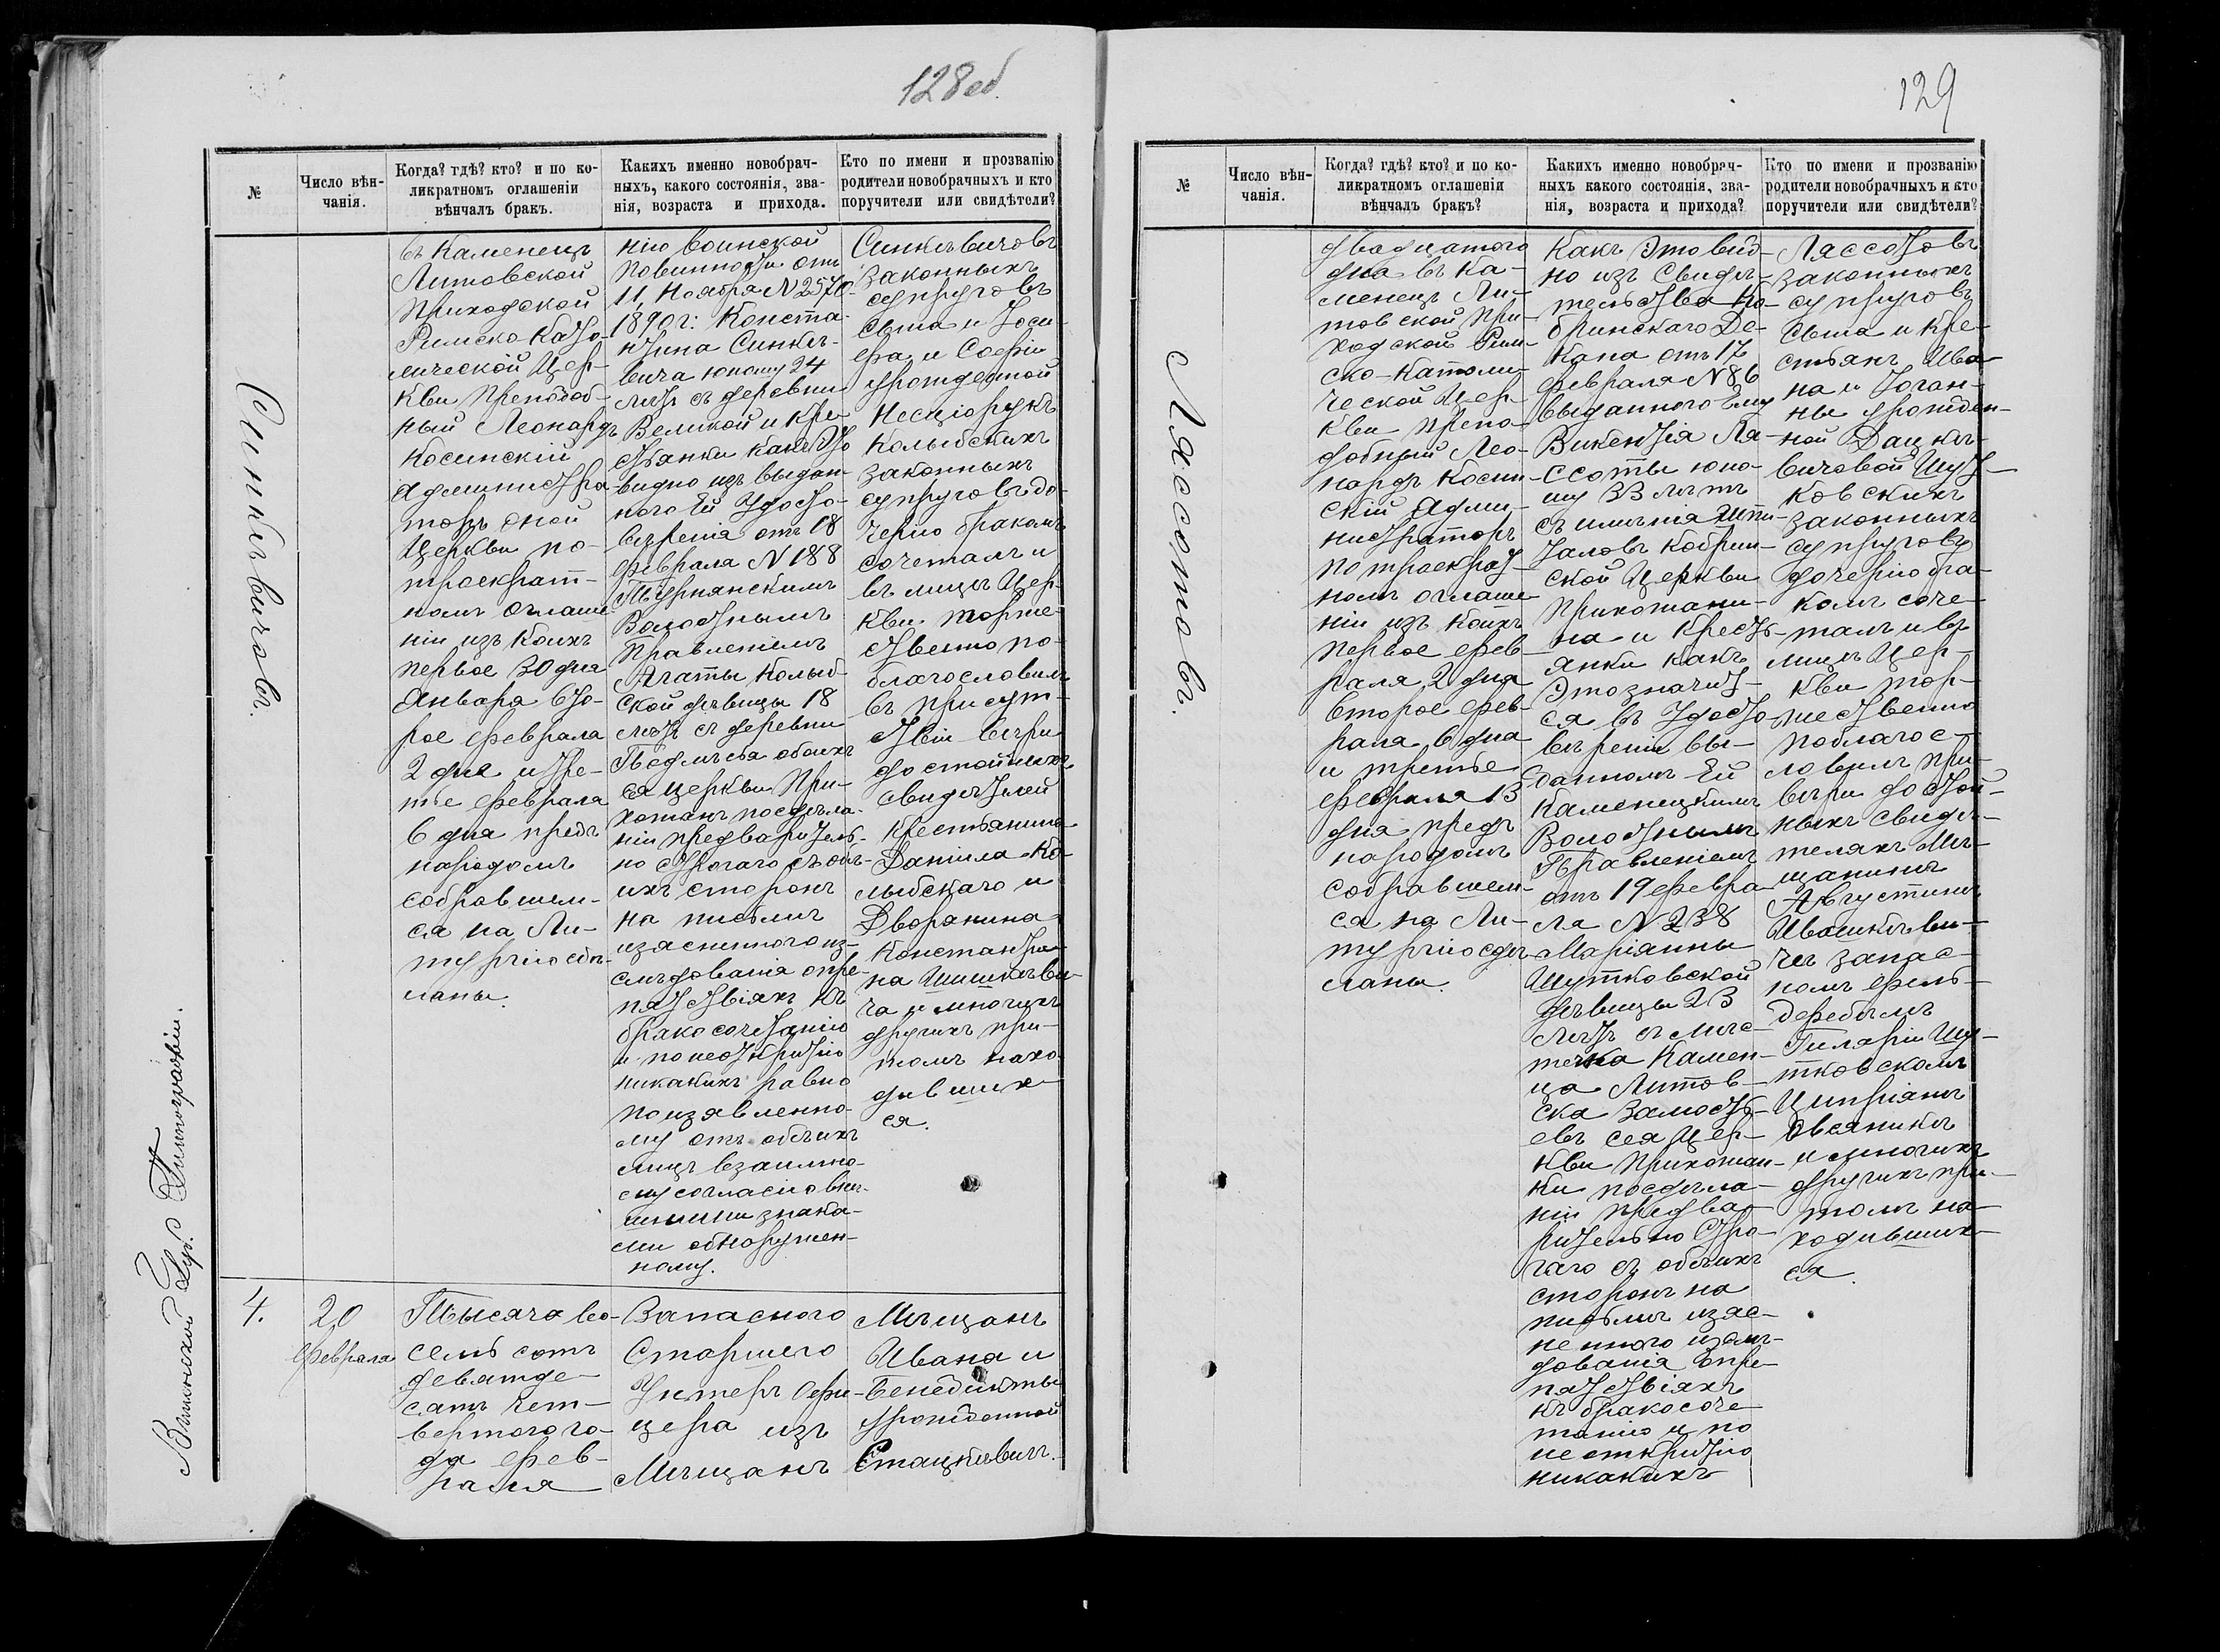 128об.
№
Число вѣн-
чанія.
Когда? гдѣ? кто? и по ко-
ликратномъ оглашеніи
вѣнчалъ бракъ.
Какихъ именно новобрач-
ныхъ, какого состоянія, зва-
нія, возраста и прихода.
Кто по имени и прозванію
родители новобрачныхъ и кто
поручители или свидѣтели?
Синкѣвичовъ.
въ Каменецъ
Литовской
Приходской
Римско Като-
лической Цер-
кви Преподоб-
ный Леонардъ
Косинскій
Администра
торъ оной
Церкви по-
троекрат-
номъ оглаше
ніи изъ Коихъ
первое 30 дня
Января вто-
рое февраля
2 дня и тре-
тье февраля
6 дня предъ
народомъ
собравшим-
ся на Ли-
тургію сдѣ-
ланы.
нію воинской
Повинности отъ
11, Ноября N 2570
1890 г: Конста-
нтина Синкѣ-
вича юношу 24
лѣтъ съ деревни
Великой и Кре-
стьянки какъ это
видно изъ выдан-
ного Ей Удосто-
вѣренія отъ 18
февраля N 188
Турнянскимъ
Волостнымъ
Правленіемъ
Агаты Колыб-
ской дѣвицы 18
лѣтъ съ деревни
Подлѣсья обоихъ
ся церкви При-
хожанъ посдѣла-
ніи предваритель-
но строгаго съ обѣ-
ихъ сторонъ
на письмѣ
изясненного из-
слѣдованія о пре-
пятствіяхъ къ
бракосочетанію
и по неоткритію
никакихъ равно
поизявленно-
му отъ обѣихъ
лицъ взаимно-
му согласію внѣ-
шними знака-
ми обнаружен-
ному.
Синкѣвичовъ
законныхъ
супруговъ
сына и Іоси-
фа и Софіи
урожденной
Несціорукъ
Колыбскихъ
законныхъ
супруговъ до-
черію бракомъ
сочеталъ и
въ лицѣ Цер-
кви торже-
ственно по-
благословилъ
въ присут-
ствіи вѣри
достойныхъ
свидѣтелей
Крестьянина
Даніила Ко-
лыбскаго и
Дворянина
Константи-
на Шишкѣви-
ча и многихъ
другихъ при-
томъ нахо-
дившихъ-
ся.
4.
20
февраля
Тысяча во-
семь сотъ
девятде-
сятъ чет-
вертого го-
да фев-
раля
Запасного
Старшего
Унтеръ Офи-
цера изъ
Мѣщанъ
Мѣщанъ
Ивана и
Бенедикты
урожденной
Стацкевичъ.
Виленской Губ. Типографіи.
129
№
Число вѣн-
чанія.
Когда? гдѣ? кто? и по ко-
ликратномъ оглашеніи
вѣнчалъ бракъ?
Какихъ именно новобрач-
ныхъ какого состоянія, зва-
нія, возраста и прихода?
Кто по имени и прозванію
родители новобрачныхъ и кто
поручители или свидѣтели?
Лясотовъ.
двадцатого
дня въ Ка-
менецъ Ли-
товской При-
ходской Рим-
ско-Католи-
ческой Цер-
кви Препо-
добный Лео-
нардъ Косин-
скій Адми-
нистраторъ
по троекрат-
номъ оглаше
ніи изъ Коихъ
первое фев-
раля 2 дня
второе фев-
раля 6 дня
и третье
февраля 13
дня предъ
народомъ
собравшим-
ся на Ли-
тургію сдѣ-
ланы.
Какъ Это вид-
но изъ Свидѣ-
тельства Ко-
бринскаго Де-
кана отъ 17
февраля N 86
выданного Ему
Викентія Ля-
ссоты юно-
шу 33 лѣтъ
съ имѣнія
Кобрин-
ской Церкви
Прихожани-
на и Кресть-
янки какъ
Это значит-
ся въ Удосто-
вѣреніи вы-
данномъ Ей
Каменецкимъ
Волостнымъ
Правленіемъ
отъ 19 февра
ля N 238
Маріанны
Шутковской
дѣвицы 23
лѣтъ съ мѣс-
течка Камен-
ца Литов-
ска Замость-
евъ сея Цер-
кви Прихожан-
ки посдѣла-
ніи предва-
рительно Стро-
гаго съ обѣихъ
сторонъ на
письмѣ изяс-
не нного изслѣ-
дованія о пре-
пятствіяхъ
къ бракосоче
танію и по
не откритію
никакихъ
Ляссотовъ
законныхъ
супруговъ
сына и Кре-
стьянъ Ива
на и Іоган-
ны урожден-
ной Дацкѣ-
вичовой Шут-
ковскихъ
законныхъ
супруговъ
дочерію бра-
комъ соче-
талъ и въ
лицѣ Цер-
кви тор-
жественно
поблагос-
ловилъ при
вѣри достой-
ныхъ свидѣ-
теляхъ Мѣ-
щанинѣ
Августинѣ
Ивашкѣви-
чѣ запас-
номъ фель-
дфебелѣ
Гиляріи Шу-
тковскомъ
Ципріянѣ
Овсяникѣ
и многихъ
другихъ при-
томъ на-
ходившихъ-
ся.